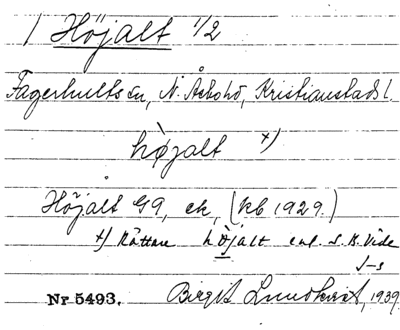 1 Höjalt 1/2
Fagerhults sn, N. Åsbo hd, Kristianstads l.
hǫ̀jalt x)
Höjalt G9, ek, (kb 1929.)
x) Rättare hö̀jalt enl. S.B. Vide
J-s
Nr 5493. Birgit Lundkvist, 1939